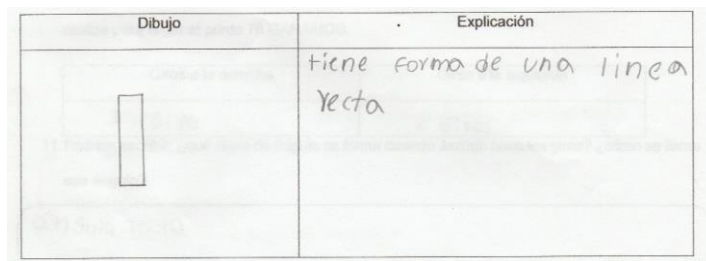 Dibujo
Explicación
tiene forma de una linea
recta